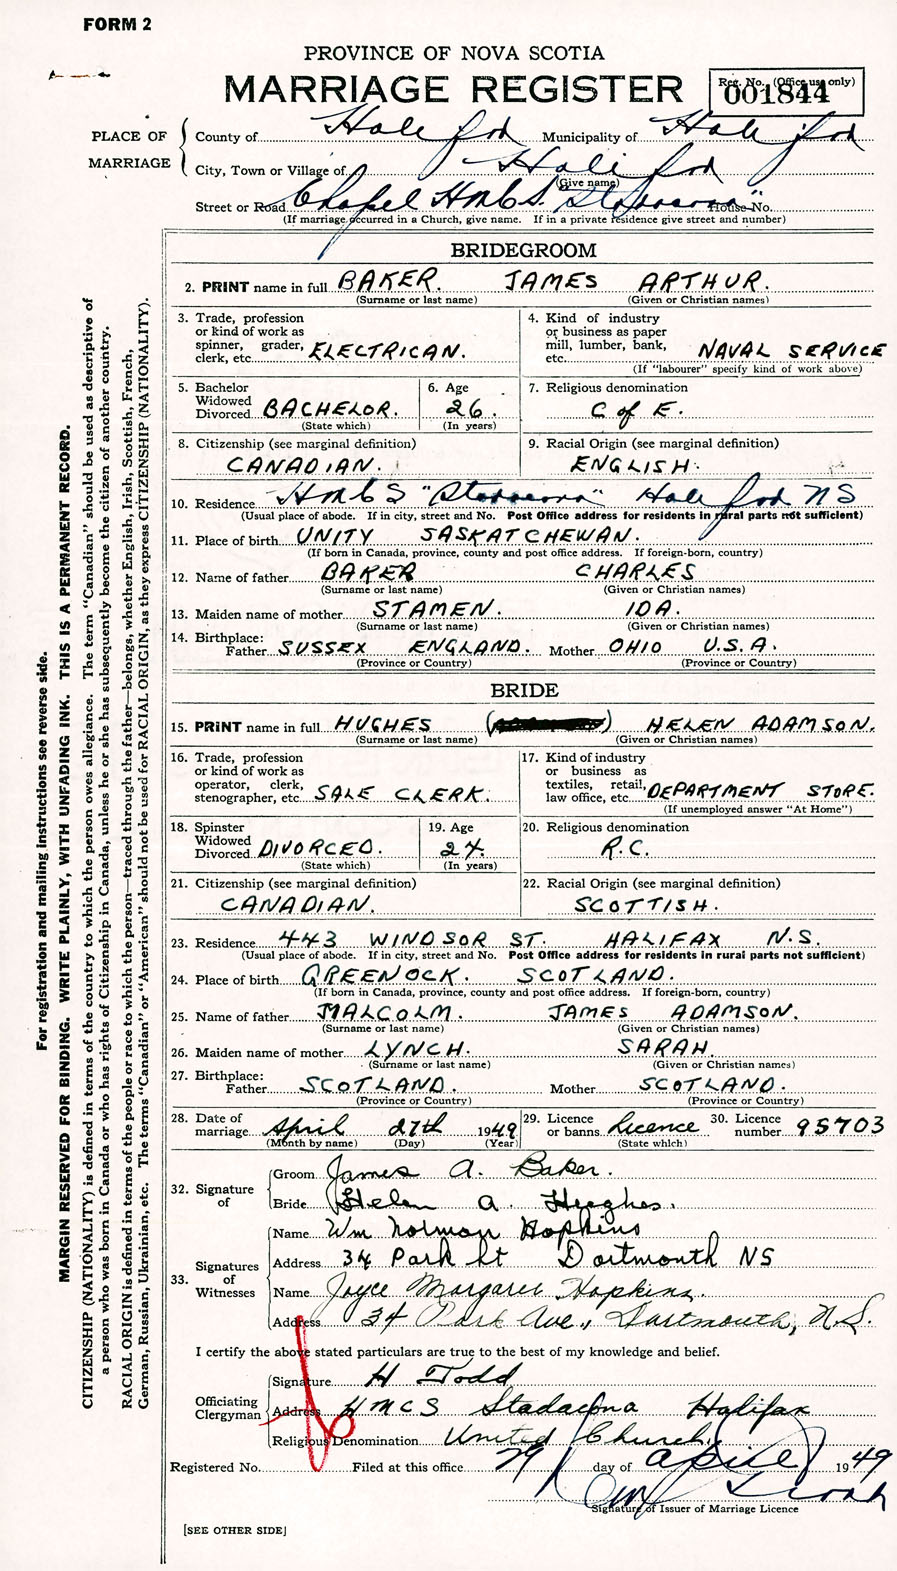 FORM 2
PROVINCE OF NOVA SCOTIA
MARRIAGE REGISTER
Reg. No. (Office use only)
001844
PLACE OF MARRIAGE
County of Halifax Municipality of Halifax
City, Town or Village of Halifax
(Give name)
Street or Road Chapel HMCS "Stadacona" House No.
(If marriage occurred in a Church, give name. If in a private residence give street and number)
BRIDEGROOM
2. PRINT name in full BAKER. JAMES ARTHUR.
(Surname or last name) (Given or Christian names)
3. Trade, profession or kind of work as spinner, grader, clerk, etc. ELECTRICAN.
4. Kind of industry or business as paper mill, lumber, bank, etc. NAVAL SERVICE
(If "labourer" specify kind of work above)
5. Bachelor Widowed Divorced BACHELOR.
(State which)
6. Age 26.
(In years)
7. Religious denomination
C of E.
8. Citizenship (see marginal definition)
CANADIAN.
9. Racial Origin (see marginal definition)
ENGLISH.
10. Residence HMCS "Stadacona" Halifax NS
(Usual place of abode. If in city, street and No. Post Office address for residents in rural parts not sufficient)
11. Place of birth UNITY SASKATCHEWAN.
(If born in Canada, province, county and post office address. If foreign-born, country)
12. Name of father BAKER CHARLES
(Surname or last name) (Given or Christian names)
13. Maiden name of mother STAMEN. IDA.
(Surname or last name) (Given or Christian names)
14. Birthplace:
Father SUSSEX ENGLAND. Mother OHIO U.S.A.
(Province or Country) (Province or Country)
BRIDE
15. PRINT name in full HUGHES ( ) HELEN ADAMSON.
(Surname or last name) (Given or Christian names)
16. Trade, profession or kind of work as operator, clerk, stenographer, etc. SALE CLERK.
17. Kind of industry or business as textiles, retail, law office, etc. DEPARTMENT STORE.
(If unemployed answer "At Home")
18. Spinster Widowed Divorced DIVORCED.
(State which)
19. Age 24.
(In years)
20. Religious denomination
R.C.
21. Citizenship (see marginal definition)
CANADIAN.
22. Racial Origin (see marginal definition)
SCOTTISH.
23. Residence 443 WINDSOR ST. HALIFAX N.S.
(Usual place of abode. If in city, street and No. Post Office address for residents in rural parts not sufficient)
24. Place of birth GREENOCK. SCOTLAND.
(If born in Canada, province, county and post office address. If foreign-born, country)
25. Name of father MALCOLM. JAMES ADAMSON.
(Surname or last name) (Given or Christian names)
26. Maiden name of mother LYNCH. SARAH.
(Surname or last name) (Given or Christian names)
27. Birthplace:
Father SCOTLAND. Mother SCOTLAND.
(Province or Country) (Province or Country)
28. Date of marriage April 27th 1949
(Month by name) (Day) (Year)
29. Licence or banns Licence
(State which)
30. Licence number 95703
32. Signature of
Groom James A. Baker.
Bride Helen A. Hughes.
33. Signatures of Witnesses
Name Wm Norman Hopkins
Address 34 Park St Dartmouth NS
Name Joyce Margaret Hopkins.
Address 34 Park Ave., Dartmouth, N.S.
I certify the above stated particulars are true to the best of my knowledge and belief.
Officiating Clergyman
Signature H Todd
Address HMCS Stadacona Halifax
Religious Denomination United Church.
Registered No. Filed at this office 29 day of April 1949
Signature of Issuer of Marriage Licence
[SEE OTHER SIDE]
For registration and mailing instructions see reverse side.
MARGIN RESERVED FOR BINDING. WRITE PLAINLY, WITH UNFADING INK. THIS IS A PERMANENT RECORD.
CITIZENSHIP (NATIONALITY) is defined in terms of the country to which the person owes allegiance. The term "Canadian" should be used as descriptive of
a person who was born in Canada or who has rights of Citizenship in Canada, unless he or she has subsequently become the citizen of another country.
RACIAL ORIGIN is defined in terms of the people or race to which the person—traced through the father—belongs, whether English, Irish, Scottish, French,
German, Russian, Ukrainian, etc. The terms "Canadian" or "American" should not be used for RACIAL ORIGIN, as they express CITIZENSHIP (NATIONALITY).